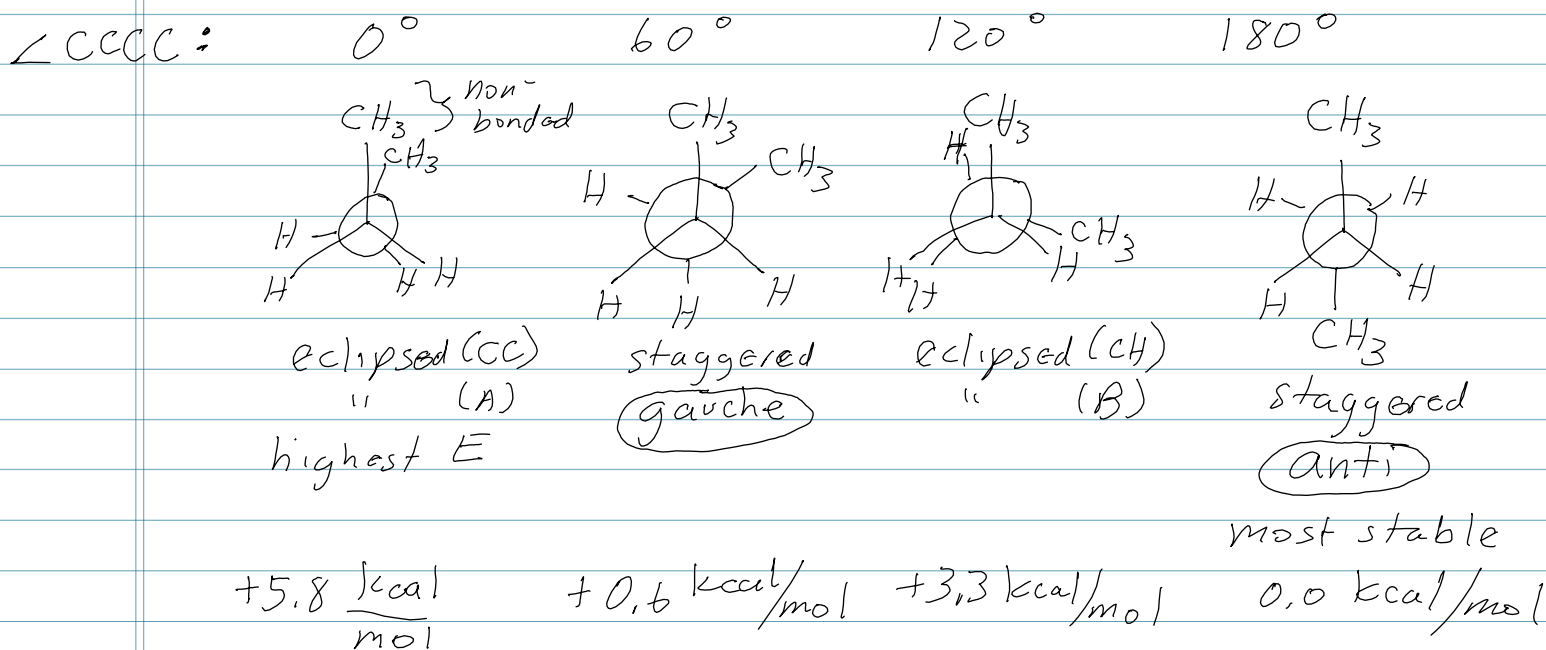 ∠CCCC: 0° 60° 120° 180°
CH3 } non-bonded
CH3
H
H
H H
eclipsed (CC)
" (A)
highest E
+5.8 kcal/mol
CH3
CH3
H
H
H
H
staggered
gauche
+0.6 kcal/mol
CH3
H
CH3
H
H
H
eclipsed (CH)
" (B)
+3.3 kcal/mol
CH3
H H
H
H
CH3
staggered
anti
most stable
0.0 kcal/mol